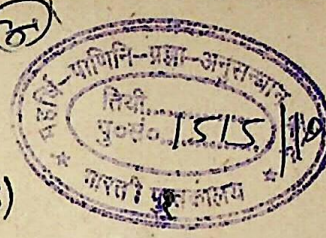 महर्षि-पाणिनि-प्रज्ञा-अनुसन्धान
तिथी..........
पु०सं०. 1515
भारती पुस्तकालय